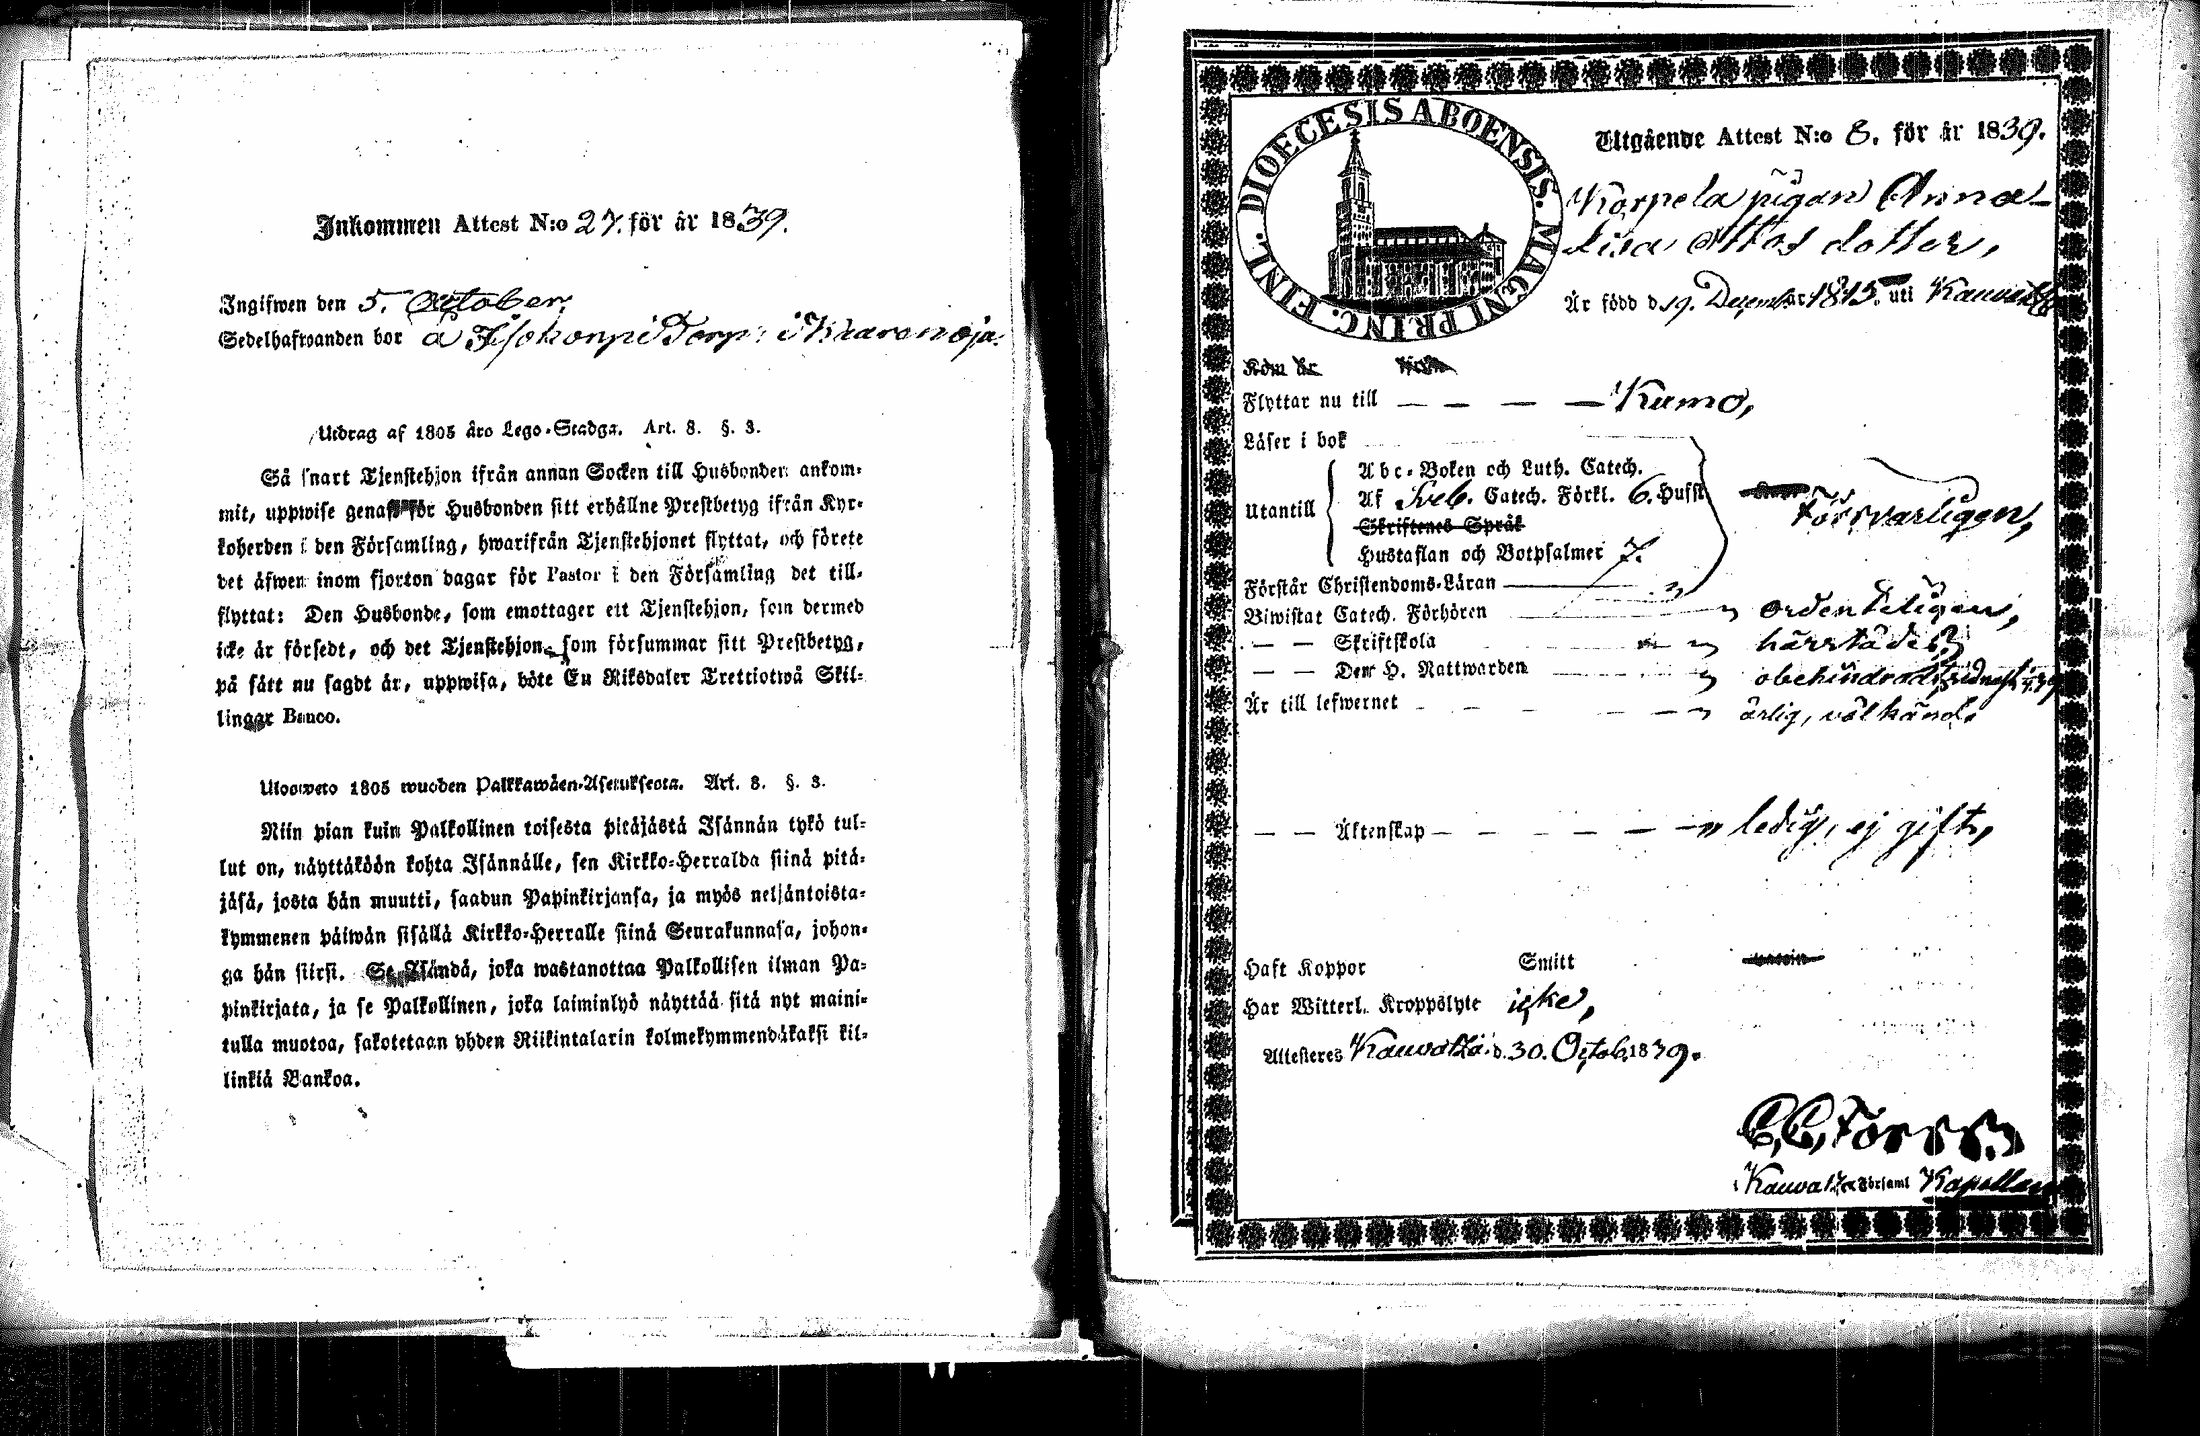 Inkommen Attest N:o 27. för år 1839.
Ingifwen den 5. October.
Sedelhafwanden bor å Isokorpi Torp: i Kaaronoja.
Utdrag af 1805 års Lego-Stadga. Art. 8. §. 3.
Så snart Tjenstehjon ifrån annan Socken till Husbonden ankom-
mit, uppwise genast för Husbonden sitt erhållne Prestbetyg ifrån Kyr-
koherden i den Församling, hwarifrån Tjenstehjonet flyttat, och förete
det äfwen inom fjorton dagar för Pastor i den Församling det till-
flyttat: Den Husbonde, som emottager ett Tjenstehjon, som dermed
icke är försedt, och det Tjenstehjon, som försummar sitt Prestbetyg,
på sätt nu sagdt är, uppwisa, böte En Riksdaler Trettiotwå Skil-
lingar Banco.
Ulosweto 1805 wuoden Palkkawäen-Asetuksesta. Art. 8. §. 3.
Niin pian kuin Palkollinen toisesta pitäjästä Isännän tykö tul-
lut on, näyttäköön kohta Isännälle, sen Kirkko-Herralda siinä pitä-
jäsä, josta hän muutti, saadun Papinkirjansa, ja myös neljäntoista-
kymmenen päiwän sisällä Kirkko-Herralle siinä Seurakunnasa, johon-
ga hän siirsi. Se Isändä, joka wastanottaa Palkollisen ilman Pa-
pinkirjata, ja se Palkollinen, joka laiminlyö näyttää sitä nyt maini-
tulla muotoa, sakotetaan yhden Riikintalarin kolmekymmendäkaksi kil-
linkiä Bankoa.
DIOECESIS ABOENSIS. MAGNI PRINC. FINL.
Utgående Attest N:o 8. för år 1839.
Karpela pigan Anna
Lisa Ottos dotter,
Är född d. 19. December 1815. uti Kauvatsa
Kom år
Flyttar nu till — — — — Kumo,
Läser i bok
Utantill
Abc-Boken och Luth. Catech.
Af Sveb. Catech. Förkl. 6. Hufst.
Skriftenes Språk
Hustaflan och Botpsalmer 7.
Försvarligen,
Förstår Christendoms-Läran
Biwistat Catech. Förhören ordenteligen,
— — Skriftskola härstädes
— — Den H. Nattwarden obehindrad,
Är till lefwernet ärlig, välkänd.
— — Äktenskap — — — — — ledig, ej gift,
Haft Koppor Smitt
Har Witterl. Kroppslyte icke,
Attesteres Kauvatsa d. 30. Octob. 1839.
i Kauvatsa Församl Kapellan